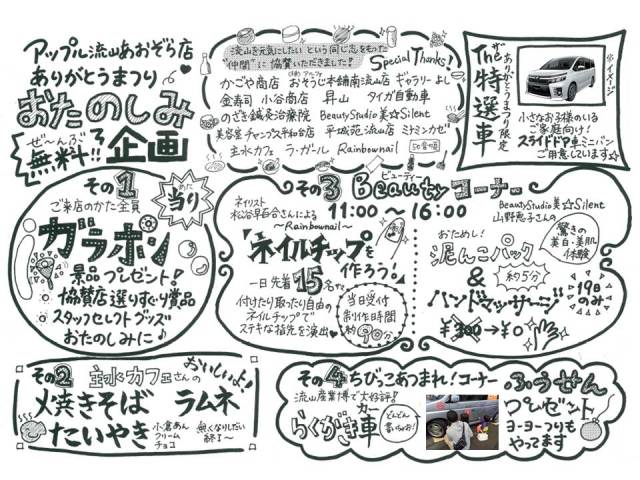 アップル流山あおぞら店
ありがとうまつり
おたのしみ
企画
ぜ～んぶ
無料!!
流山を元気にしたいという同じ志をもった
"仲間"に協賛いただきました!
Special Thanks!
かごや商店 (株)アルファ おそうじ本舗南流山店 ギャラリーよし
金寿司 小谷商店 昇山 タイガ自動車
のざき鍼灸治療院 BeautyStudio美☆Silent
美容室チャンプス平和台店 平城苑流山店 ミナミカゼ
主水カフェ ラ・ガール Rainbownail
50音順
The ザ
特選車
ありがとうまつり限定
※イメージ
小さなお子様のいる
ご家庭向け!
スライドドア車ミニバン
ご用意しています☆
その1
ご来店のかた全員
あた
当り
ガラポン
景品プレゼント!
協賛店選りすぐり賞品
スタッフセレクトグッズ
おたのしみに♪
その3 Beautyコーナー
ビューティー
11:00～16:00
ネイリスト
松谷早百合さんによる
～Rainbownail～
ネイルチップを
作ろう!
一日先着15名さま
付けたり取ったり自由の
ネイルチップで
ステキな指先を演出♥
当日受付
制作時間
約90分
BeautyStudio美☆Silent
山野恵子さんの
おためし!
泥んこパック
約5分
&
ハンドマッサージ
¥300→¥0
驚きの
美白・美肌
体験
19日
のみ
その2 主水カフェさんの
おいしいよ!
焼きそば ラムネ
たいやき
小倉あん
クリーム
チョコ
無くなりしだい
終了～
その4 ちびっこあつまれ!コーナー
流山産業博で大好評!!
らくがき車
カー
どんどん
書いちゃお!
ふうせん
プレゼント
ヨーヨーつりも
やってます